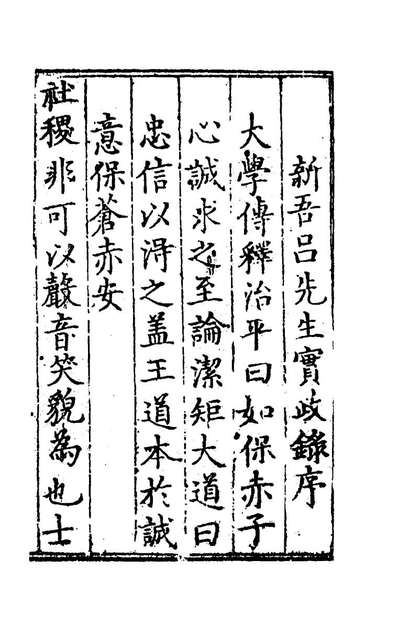 新吾吕先生實政錄序
大學傳釋治平曰如保赤子
心誠求之至論潔矩大道曰
忠信以淂之盖王道本於誠
意保蒼赤安
社稷非可以聲音笑貌為也士